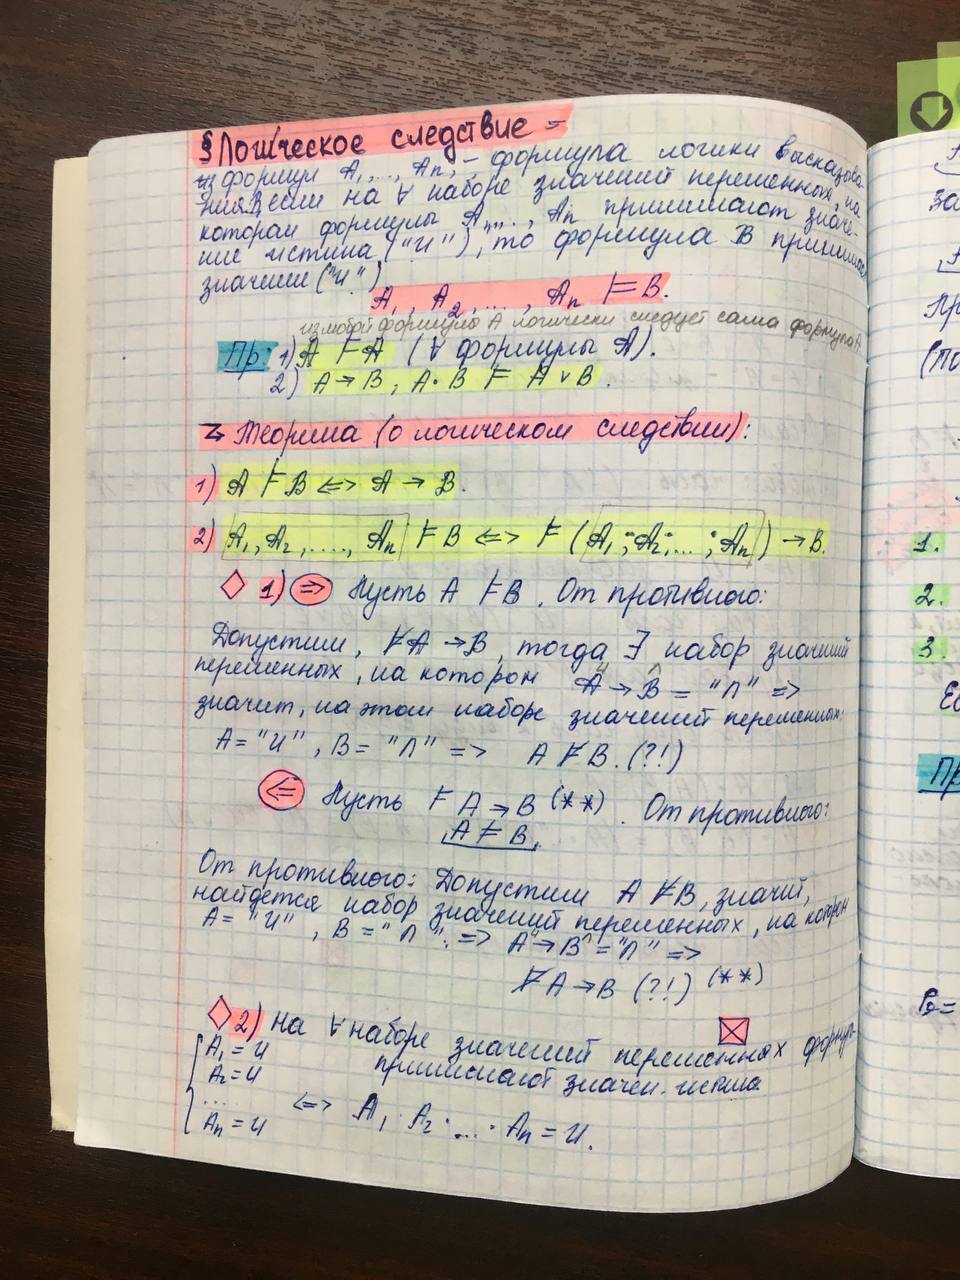 § Логическое следствие –
из формул A₁,..., Aₙ, – формула логики высказыва-
ния B, если на ∀ наборе значений переменных, на
котором формулы A₁,..., Aₙ принимают значе-
ние истина ("И"), то формула B принимает
значение ("И")
A₁, A₂, ..., Aₙ ⊨ B.
из любой формулы A логически следует сама формула A
Пр: 1) A ⊨ A (∀ формулы A).
2) A → B, A · B ⊨ A ∨ B.
Теорема (о логическом следствии):
1) A ⊨ B <=> A → B.
2) A₁, A₂, ...., Aₙ ⊨ B <=> ⊨ (A₁ · A₂ · ... · Aₙ) → B.
◇ 1) (=>) Пусть A ⊨ B. От противного:
Допустим, ⊭ A → B, тогда ∃ набор значений
переменных, на котором A → B = "Л" =>
значит, на этом наборе значений переменных:
A = "И", B = "Л" => A ⊭ B. (?!)
(<=) Пусть ⊨ A → B (**). От противного:
A ⊨ B.
От противного: Допустим A ⊭ B, значит,
найдется набор значений переменных, на котором
A = "И", B = "Л". => A → B = "Л" =>
⊭ A → B (?!) (**)
◇ 2) На ∀ наборе значений переменных формул
A₁ = И принимают значен. истина
A₂ = И
.... <=> A₁ · A₂ · ... · Aₙ = И.
Aₙ = И
за
Пр
1.
2.
3.
Пр